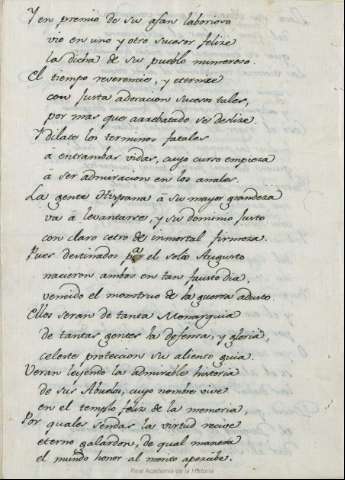 Y en premio de su afan laborioso
vio en uno y otro sucesor felize
la dicha de su pueblo numeroso.
El tiempo reverencie, y eternize
con justa adoracion sucesos tales,
por mas que arrebatado se deslize.
Y dilate los terminos fatales
a entrambas vidas, cuyo curso empieza
à ser admiracion en los anales.
La gente Hispana à su mayor grandeza
và à levantarse, y su dominio justo
con claro cetro de inmortal firmeza.
Pues destinados pa. el solio Augusto
nacieron ambos en tan fausto dia,
vencido el monstruo de la guerra adusto.
Ellos seran de tanta Monarquia
de tantas gentes la defensa, y gloria,
celeste proteccion su aliento guia.
Veran leyendo la admirable historia
de sus Abuelos, cuyo nombre vive
en el templo feliz de la memoria,
Por quales sendas la virtud recive
eterno galardon, de qual manera
el mundo honor al merito apercibe.
Real Academia de la Historia